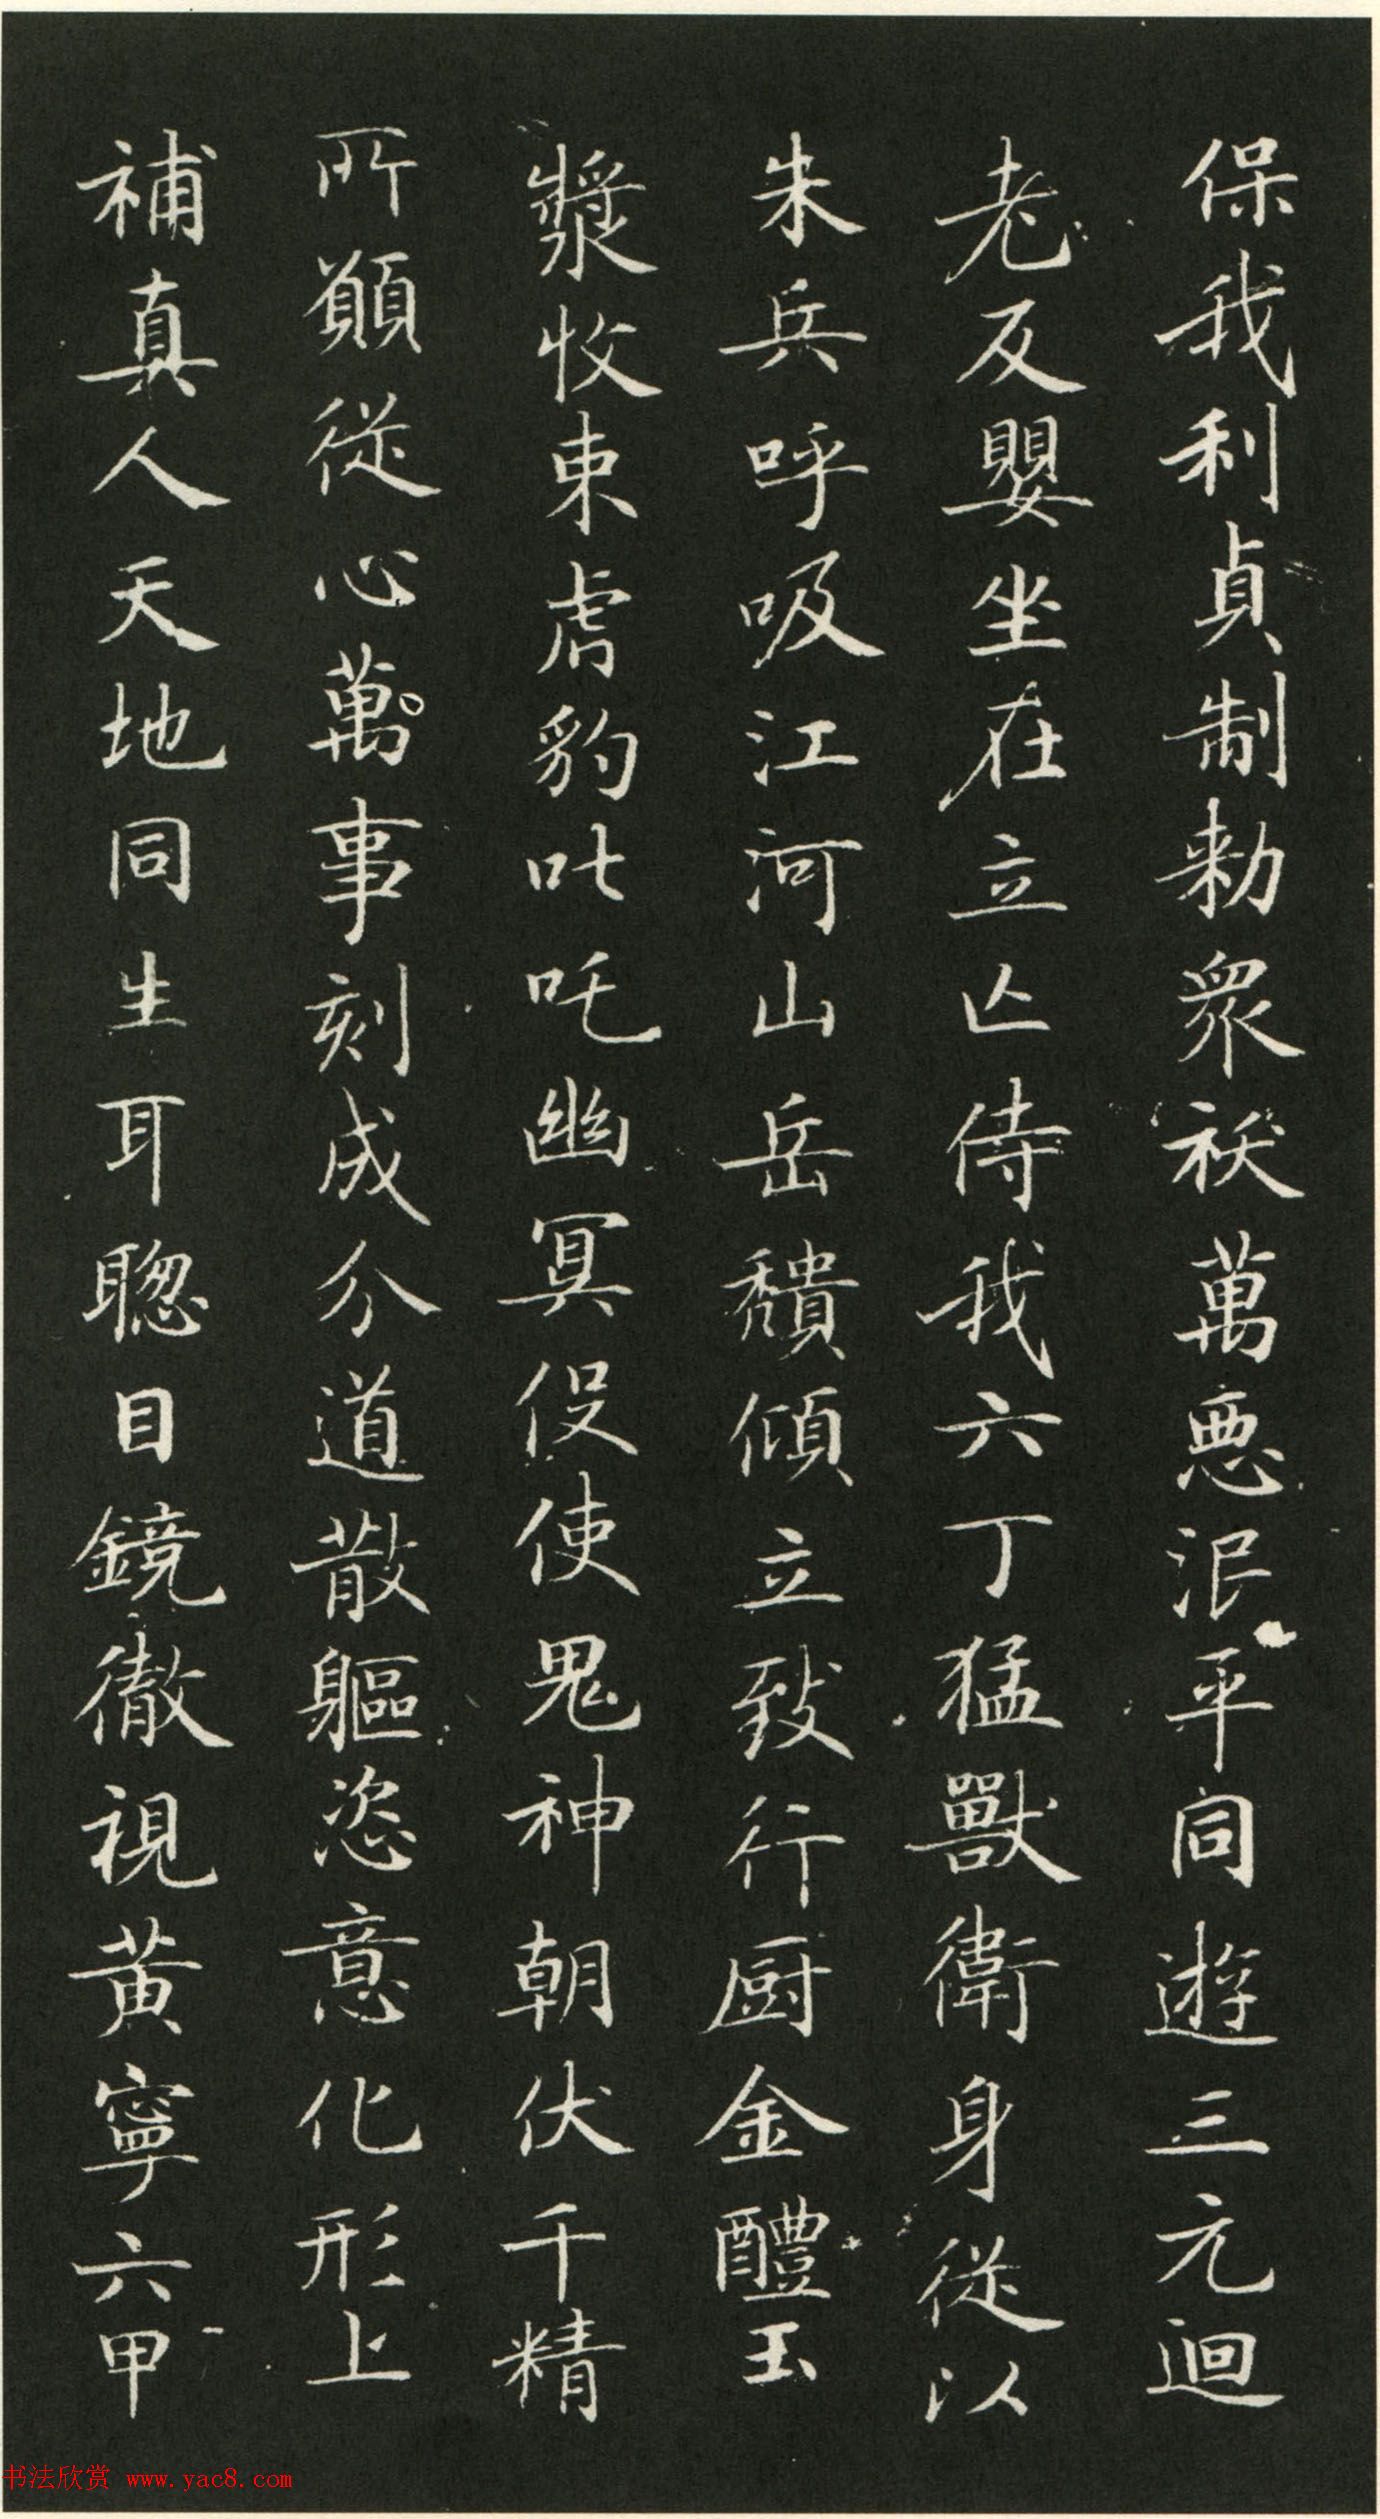 保我利貞制勑眾袄萬惡泯平同遊三元迴
老反嬰坐在立亡侍我六丁猛獸衛身從以
朱兵呼吸江河山岳穨傾立致行厨金醴玉
漿收束虎豹叱吒幽冥役使鬼神朝伏千精
所願從心萬事刻成分道散軀恣意化形上
補真人天地同生耳聰目鏡徹視黄寧六甲
书法欣赏 www.yac8.com